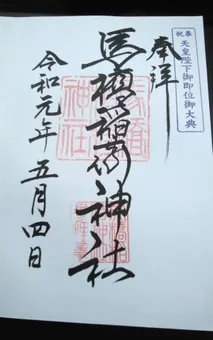 奉祝
天皇陛下御即位御大典
奉拝
馬橋稲荷神社
令和元年 五月四日